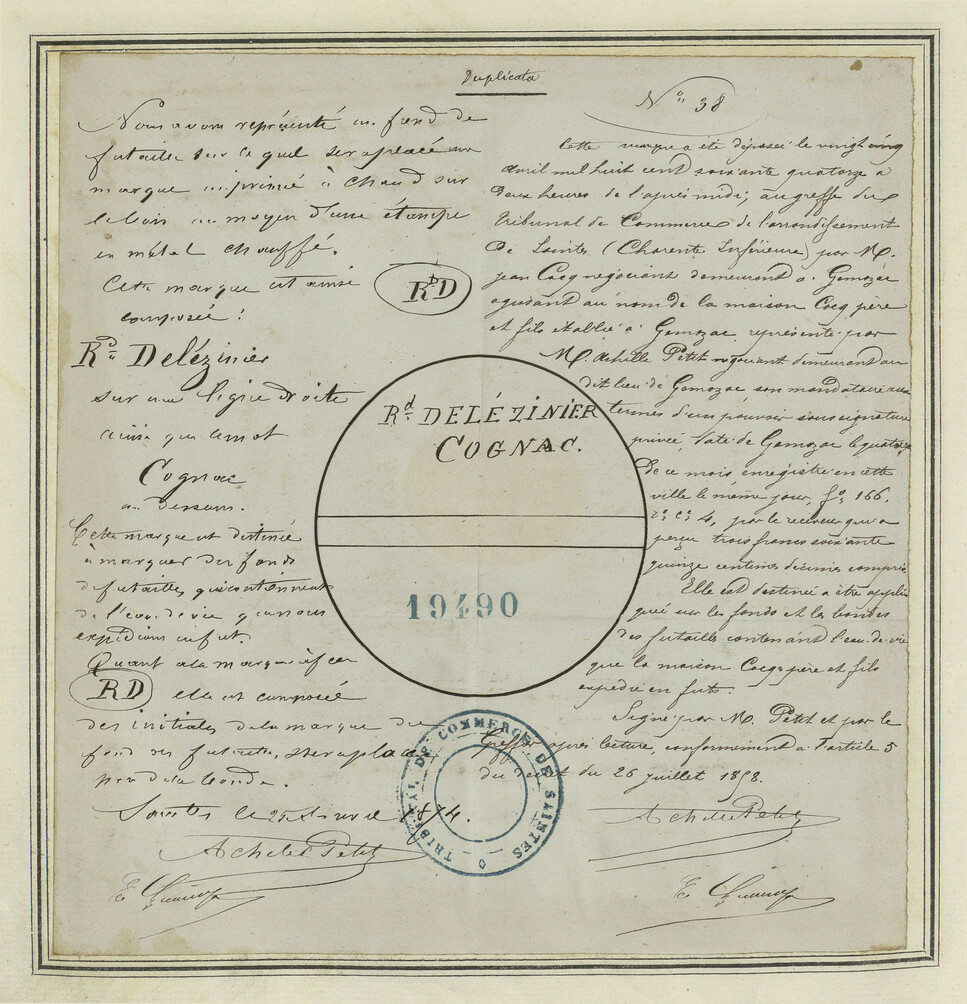 Duplicata
Nous avons représenté un fond de
futaille sur lequel sera placé une
marque imprimée à chaud sur
le bois au moyen d'une étampe
en métal chauffé.
Cette marque est ainsi
composée :
Rd Delézinier
sur une ligne droite
ainsi que le mot
Cognac
au dessous.
Cette marque est destinée
à marquer des fonds
de futailles, qui contiennent
de l'eau de vie que nous
expédions en fut.
Quant à la marque à feu
RD elle est composée
des initiales de la marque du
fond des futailles, sera placée
près de la bonde.
Saintes le 25 Avril 1874.
Achille Petit
RdD
Rd DELÉZINIER
COGNAC.
19490
TRIBUNAL DE COMMERCE DE SAINTES
No 38
Cette marque a été déposée le vingt cinq
avril mil huit cent soixante quatorze à
deux heures de l'après midi, au greffe du
Tribunal de Commerce de l'arrondissement
de Saintes (Charente Inférieure) par M.
jean Cocq négociant demeurant à Gemozac
agissant au nom de la maison Cocq père
et fils établie à Gemozac représenté par
M. Achille Petit négociant demeurant au
dit lieu de Gemozac son mandataire aux
termes d'un pouvoir sous signature
privée daté de Gemozac le quatorze
de ce mois enregistré en cette
ville le même jour, fo 166,
co 4, par le receveur qui a
perçu trois francs soixante
quinze centimes décimes compris
Elle est destinée a être appli
qué sur les fonds et les bondes
des futailles contenant l'eau-de-vie
que la maison Cocq père et fils
expédie en futs.
Signé par M. Petit et par le
Greffier après lecture, conformément à l'article 5
du décret du 26 juillet 1858.
Achille Petit